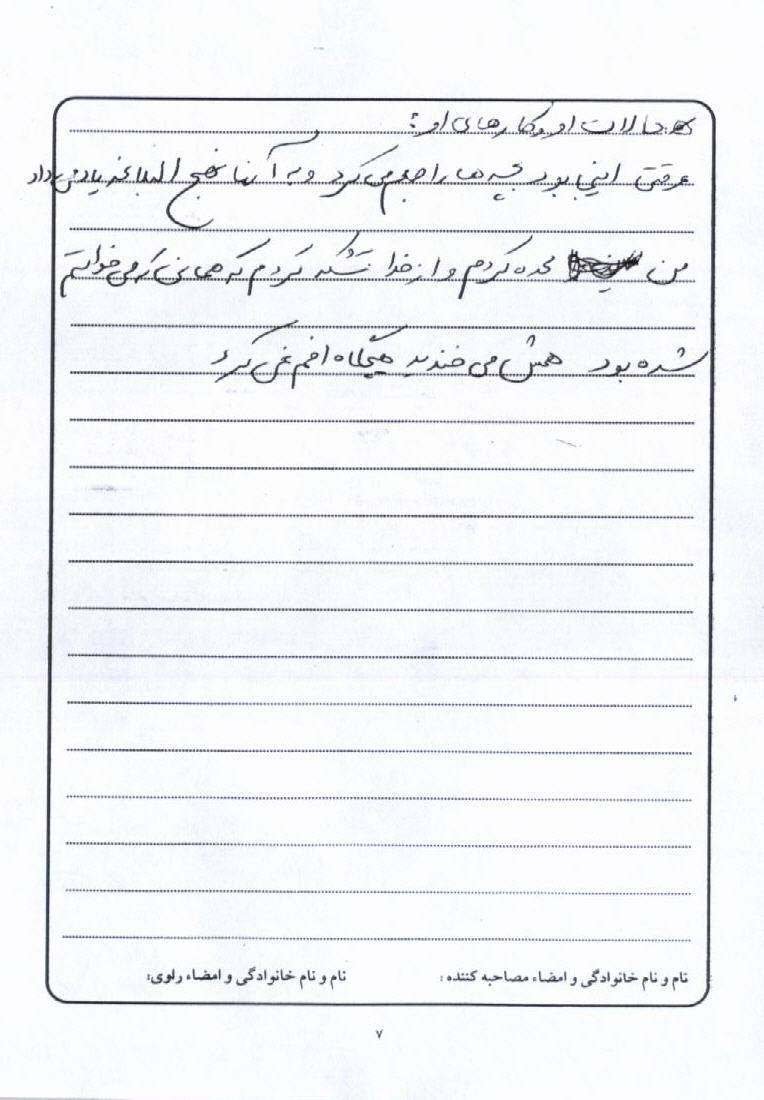 حالات او و کارهای او :
وقتی اینجا بود بچه ها را جمع می کرد و به آنها نهج البلاغه یاد می داد
من سجده کردم و از خدا تشکر کردم که همانی که می خواستم
شده بود همش می خندید هیچگاه اخم نمی کرد
نام و نام خانوادگی و امضاء مصاحبه کننده :
نام و نام خانوادگی و امضاء راوی:
۷